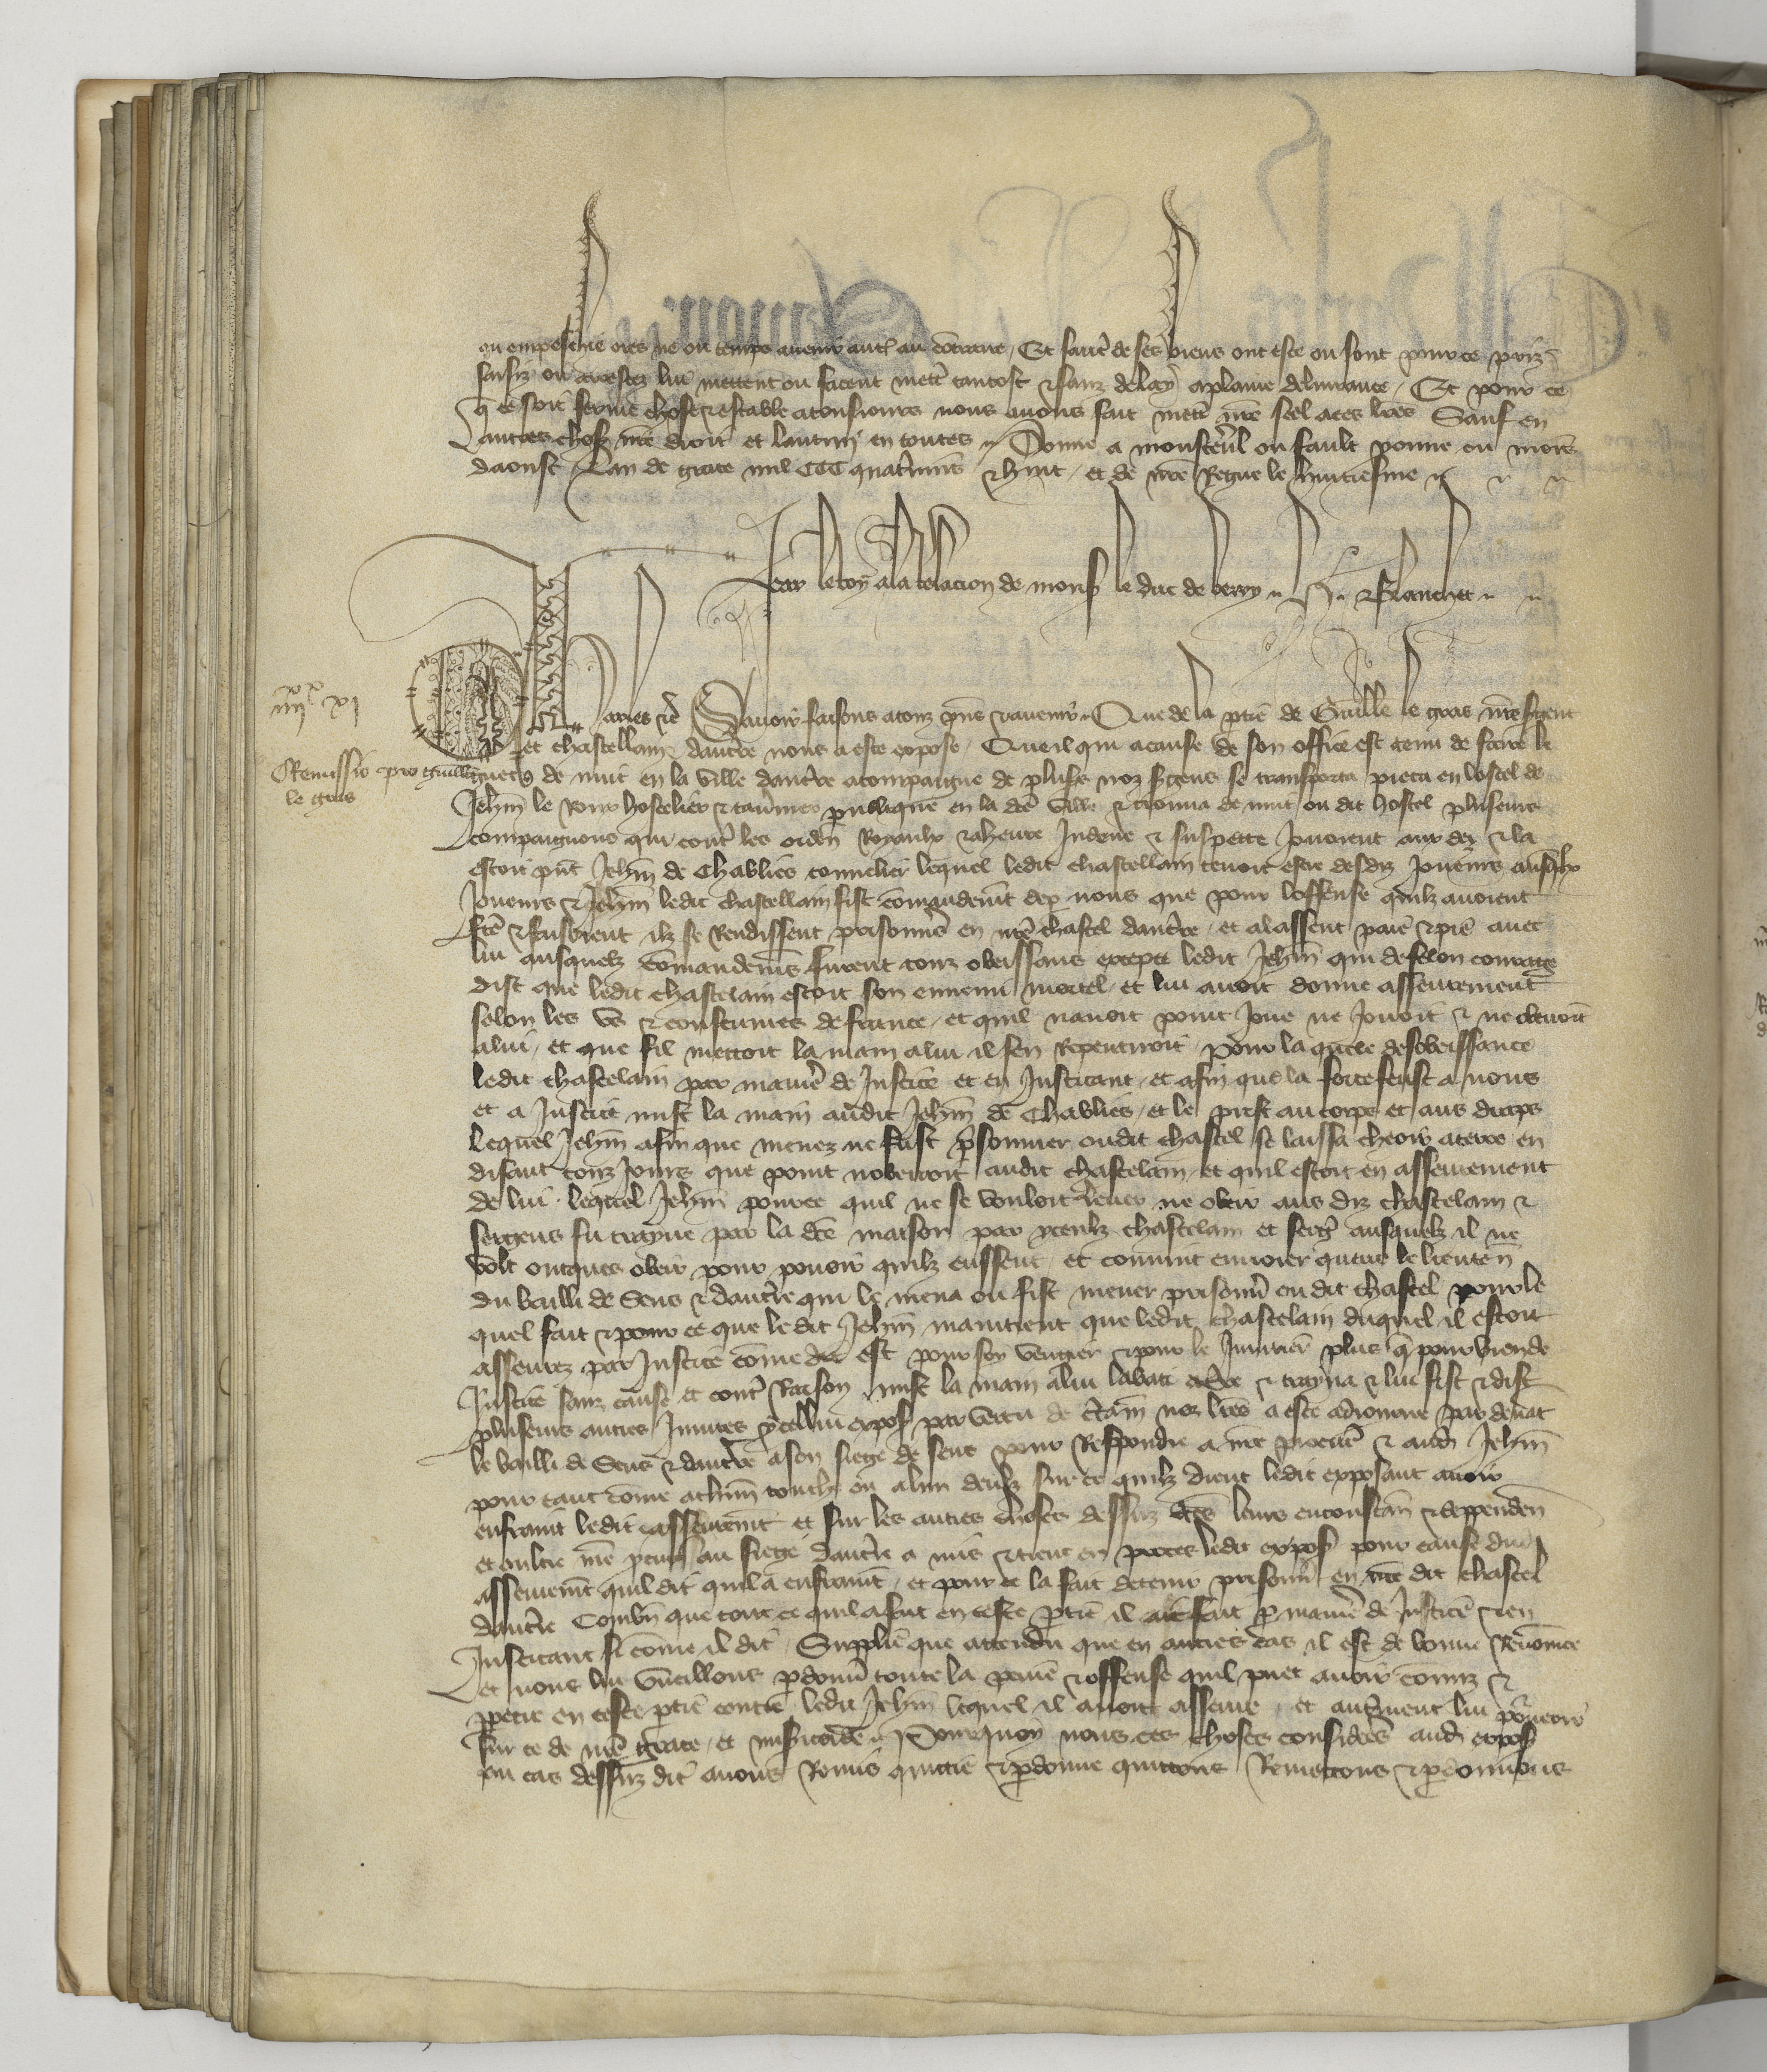 ou empeschie ores ne ou temps avenir aucũ au contraire / Et sauc̃ de ses biens ont este ou sont pour ce priz
saisiz ou arrestez lui mettent ou facent mettr̃ tantost & sanz delay a plaine delivrance / Et pour ce
q̃ ce soit ferme chose & estable a tousiours nous avons fait mettr̃ nr̃e scel a ces lr̃es Sauf en
autres choses nr̃e droit et lautruy en toutes Donne a monsterul ou fault yonne ou mois
daoust Lan de grace mil CCC quatrevins & huit / et de nr̃e Regne le huitiesme
Par le roy a la relacion de mons le duc de berry Blanchet
iiijxx xj
Charles &c̃ Savoir faisons a touz p̃ns & avenir Que de la p̃tie de Guille le gras nr̃e sergent
Remissio pro Guill̃o
le gras
et chastellain daucerre nous a este expose / Que il qui a cause de son office est tenu de faire le
guet de nuit en la ville daucerre acompaigne de plus̃s noz s̃gens se transporta pieca en lostel de
Jeh̃n le hostelier & tavernier publique en la dc̃e ville & trouva de nuit ou dit hostel pluseurs
compaignons qui contr̃ les orden̄ Royaulx & a heure Indeue & suspecte Jouoient aux dez & la
estoit p̃nt Jeh̃n de Chablies tonnelier lequel ledit chastellain tenoit estre desdiz Joueurs ausquelx
Joueurs & Jeh̃n ledit chastellain fist com̃andem̃t de p nous que pour loffense quilz avoient
fc̃e & faisoient ilz se Rendissent prisonn̄s en nr̃e chastel daucerre / et alassent avec
lui ausquelz com̃andem̃s furent touz obeissans excepte ledit Jeh̃n qui de felon courage
dist que ledit chastelain estoit son ennemi mortel / et lui avoit donne asseurement
selon les us & coustumes de france / et quil navoit point Joue ne Jouoit & ne obeiroit
a lui / et que sil mettoit la main a lui il sen Repentiroit / Pour la quele desobeissance
ledit chastelain par manier̃ de Justice et en Justicant / et afin que la force feust a nous
et a Justice mist la main audit Jeh̃n de Chablies / et le prist au corps et aus draps
Lequel Jeh̃n afin que menez ne fust p̃sonnier oudit chastel se laissa cheoir a terre / en
disant touz Jours que point nobeiroit audit chastelain / et quil estoit en asseurement
de lui / lequel Jeh̃n pource quil ne se vouloit lever ne obeir aus diz chastelain &
sergens fu trayne par la dc̃e maison par yceulx chastelain et serg̃ ausquelz il ne
volt onques obeir pour povoir quilz eussent / et convint envoier querre le lieuten̄
du bailli de Sens & daucerre qui le mena ou fist mener prisonn̄ ou dit chastel pour le
quel fait & pour ce que le dit Jeh̃n maintient que ledit chastelain duquel il estoit
asseurez par Justice com̃e dit est pour soy vengier & pour le Injurier plus q̃ pour bien de
Justice sanz cause et contr̃ Raison mist la main a lui labati a t̃re & trayna & lui fist & dist
pluseurs autres Injures ycellui expos̃ par vertu de c̃tain̄ noz lr̃es a este adjourne par devãt
le bailli de Sens & daucerre a son siege de sens pour Respondre a nr̃e procur̃ & aud̃ Jeh̃n
pour tant com̃e a chũn touche ou a lun deulx sur ce quilz dient ledit exposant avoir
enfraint ledit asseurem̃t et sur les autres choses dessus dc̃es leurs circonstan̄ & deppenden̄
et oultre nr̃e p̃cur̃ au siege daucerre a mis & tient en proces ledit expos̃ pour cause dud̃
asseurem̃t quil dit quil a enfraint / et pour ce la fait detenir prisonn̄ en nr̃e dit chastel
daucerre Combn̄ que tout ce quil a fait en ceste p̃tie il ait fait p manier̃ de Justice & en
Justicant si com̃e il dit / Supplie que attendu que en autres cas il est de bonne Renom̃ee
et nous lui vueillons p̃donn̄ toute la peine & offense quil puet avoir com̃iz &
p̃petre en ceste p̃tie contre ledit Jeh̃n lequel il avoit asseure / et autrem̃ent lui pourveoir
sur ce de nr̃e grace / et mis̃icorde Pourquoy nous ces choses consider̃s aud̃ expos̃
ou cas dessuz dit avons Remis quittie & p̃donne quittons Remettons & p̃donnons